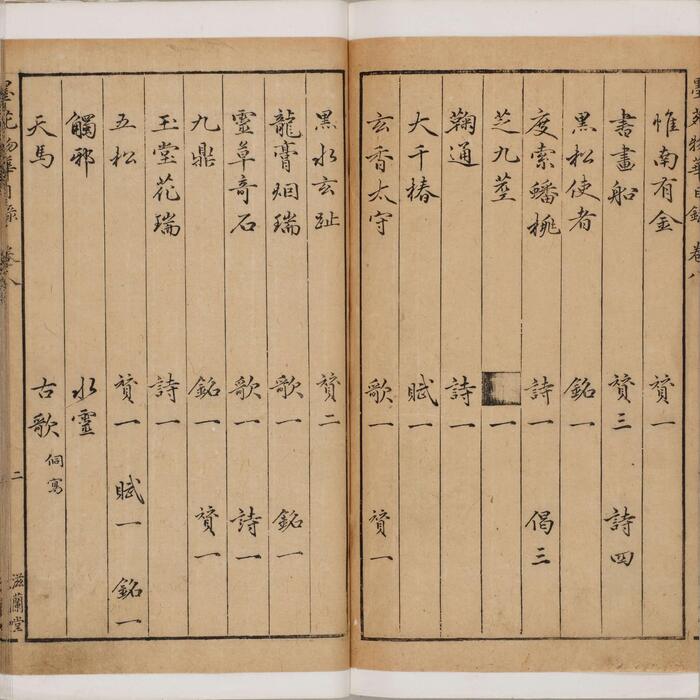 惟南有金 賛一
書畫船 賛三 詩四
黑松使者 銘一
度索蟠桃 詩一 偈三
芝九莖 一
鞠通 詩一
大千椿 賦一
玄香太守 歌一 賛一
黑水玄趾 賛二
龍膏烟瑞 歌一 銘一
靈草奇石 歌一 詩一
九鼎 銘一 賛一
玉堂花瑞 詩一
五松 賛一 賦一 銘一
觸邪 水靈
天馬 古歌
卷八
二
滋蘭堂